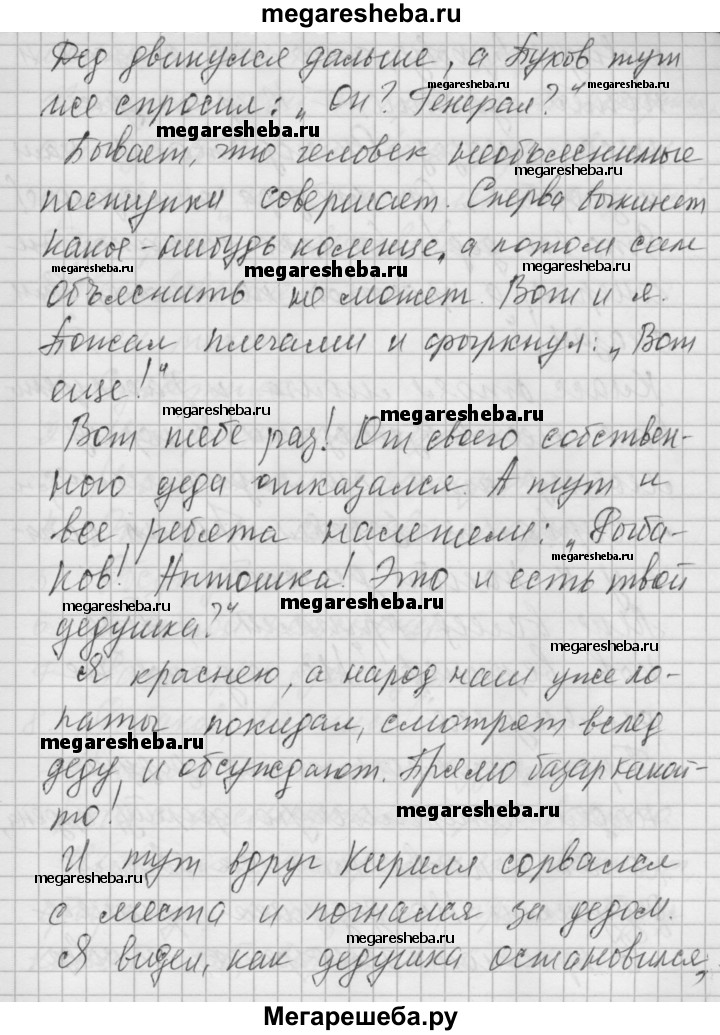 megaresheba.ru
Дед двинулся дальше, а Пухов тут
megaresheba.ru megaresheba.ru
же спросил: „Он? Генерал?“
megaresheba.ru
Бывает, что человек необъяснимые
megaresheba.ru
поступки совершает. Сперва выкинет
какое-нибудь коленце, а потом сам
megaresheba.ru megaresheba.ru megaresheba.ru
объяснить не может. Вот и я.
Пожал плечами и фыркнул: „Вот
еще!“
megaresheba.ru megaresheba.ru
Вот тебе раз! От своего собствен-
ного деда отказался. А тут и
все ребята налетели: „Рыба-
megaresheba.ru
ков! Антошка! Это и есть твой
megaresheba.ru megaresheba.ru
дедушка?“
megaresheba.ru
Я краснею, а народ наш уже ло-
паты покидал, смотрят вслед
megaresheba.ru
деду и обсуждают. Прямо базар какой-
то!
megaresheba.ru
И тут вдруг Кирилл сорвался
megaresheba.ru
с места и погнался за дедом.
megaresheba.ru
Я видел, как дедушка остановился,
Мегарешеба.ру